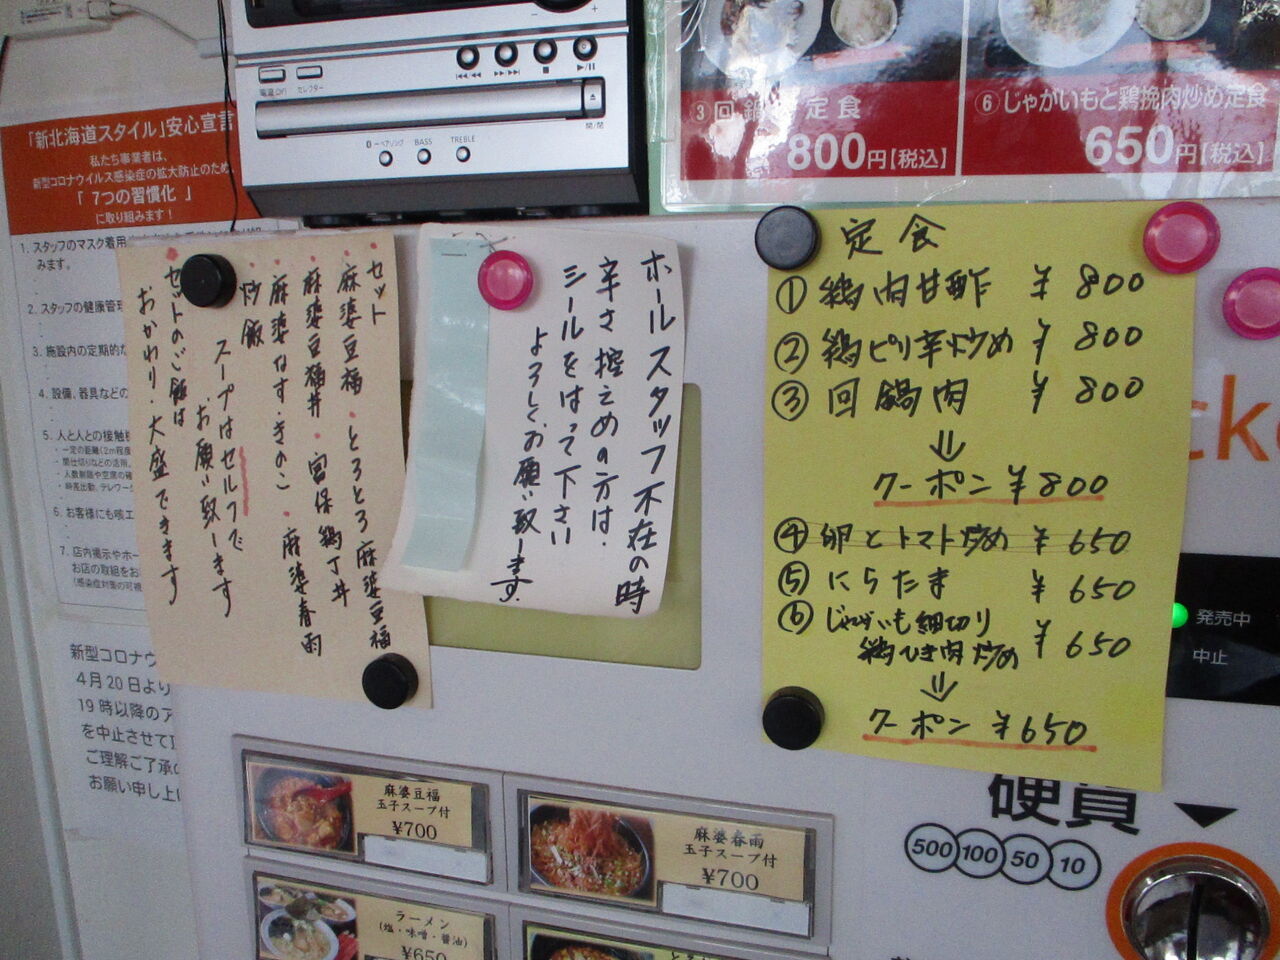 電源
セレクター
BASS
TREBLE
開/閉
③回鍋 定食
800円【税込】
⑥じゃがいもと鶏挽肉炒め定食
650円【税込】
「新北海道スタイル」安心宣言
私たち事業者は、
新型コロナウイルス感染症の拡大防止のため
「7つの習慣化」
に取り組みます!
1. スタッフのマスク着用
みます。
2. スタッフの健康管理
3. 施設内の定期的な
4. 設備、器具などの
5. 人と人との接触
・一定の距離(2m程度
6. お客様にも咳エ
7. 店内掲示やホー
お店の取組をお
新型コロナウ
4月20日より
19時以降のア
を中止させて
ご理解ご了承の
お願い申し上
セット
・麻婆豆福・とろとろ麻婆豆福
・麻婆豆福丼・宮保鶏丁丼
・麻婆なす・きのこ・麻婆春雨
・炒飯
スープはセルフで
お願い致します
・セットのご飯は
おかわり・大盛できます
ホールスタッフ不在の時
辛さ控えめの方は、
シールをはって下さい
よろしくお願い致します。
定食
①鶏肉甘酢 ¥800
②鶏ピリ辛炒め ¥800
③回鍋肉 ¥800
⇓
クーポン ¥800
④卵とトマト炒め ¥650
⑤にらたま ¥650
⑥じゃがいも細切り
鶏ひき肉炒め ¥650
⇓
クーポン ¥650
cke
発売中
中止
硬貨
500 100 50 10
麻婆豆福
玉子スープ付
¥700
麻婆春雨
玉子スープ付
¥700
ラーメン
(塩・味噌・醤油)
¥650